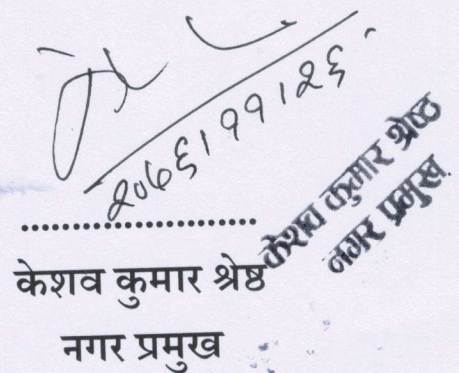 २०७६।११।२६
केशव कुमार श्रेष्ठ
नगर प्रमुख
..............................
केशव कुमार श्रेष्ठ
नगर प्रमुख